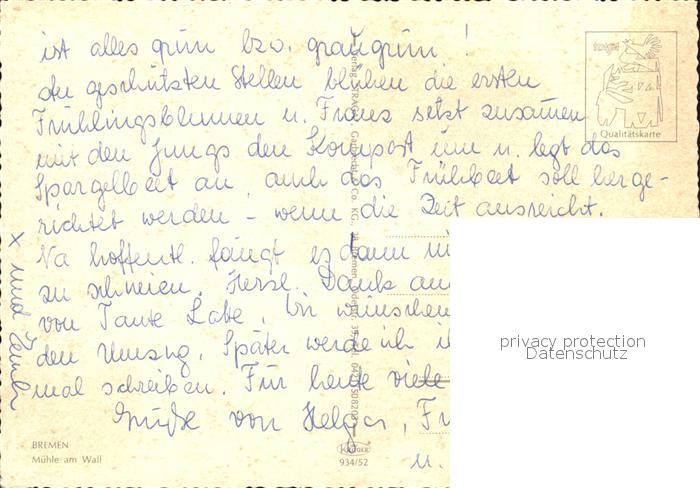 ist alles grün bzw. graugrün!
An geschützten Stellen blühen die ersten
Frühlingsblumen u. Franz setzt zusammen
mit den Jungs den Kompost um u. legt das
Spargelbeet an, auch das Frühbeet soll herge-
richtet werden – wenn die Zeit ausreicht.
Na hoffentl. fängt es dann
zu schneien. Herzl. Dank
von Tante Lobe. Wir wünschen
den Umzug. Später werde ich
mal schreiben. Für heute viele
Grüße von Helga,
u.
x und
Qualitätskarte
privacy protection
Datenschutz
BREMEN
Mühle am Wall
KRÜGER
934/52